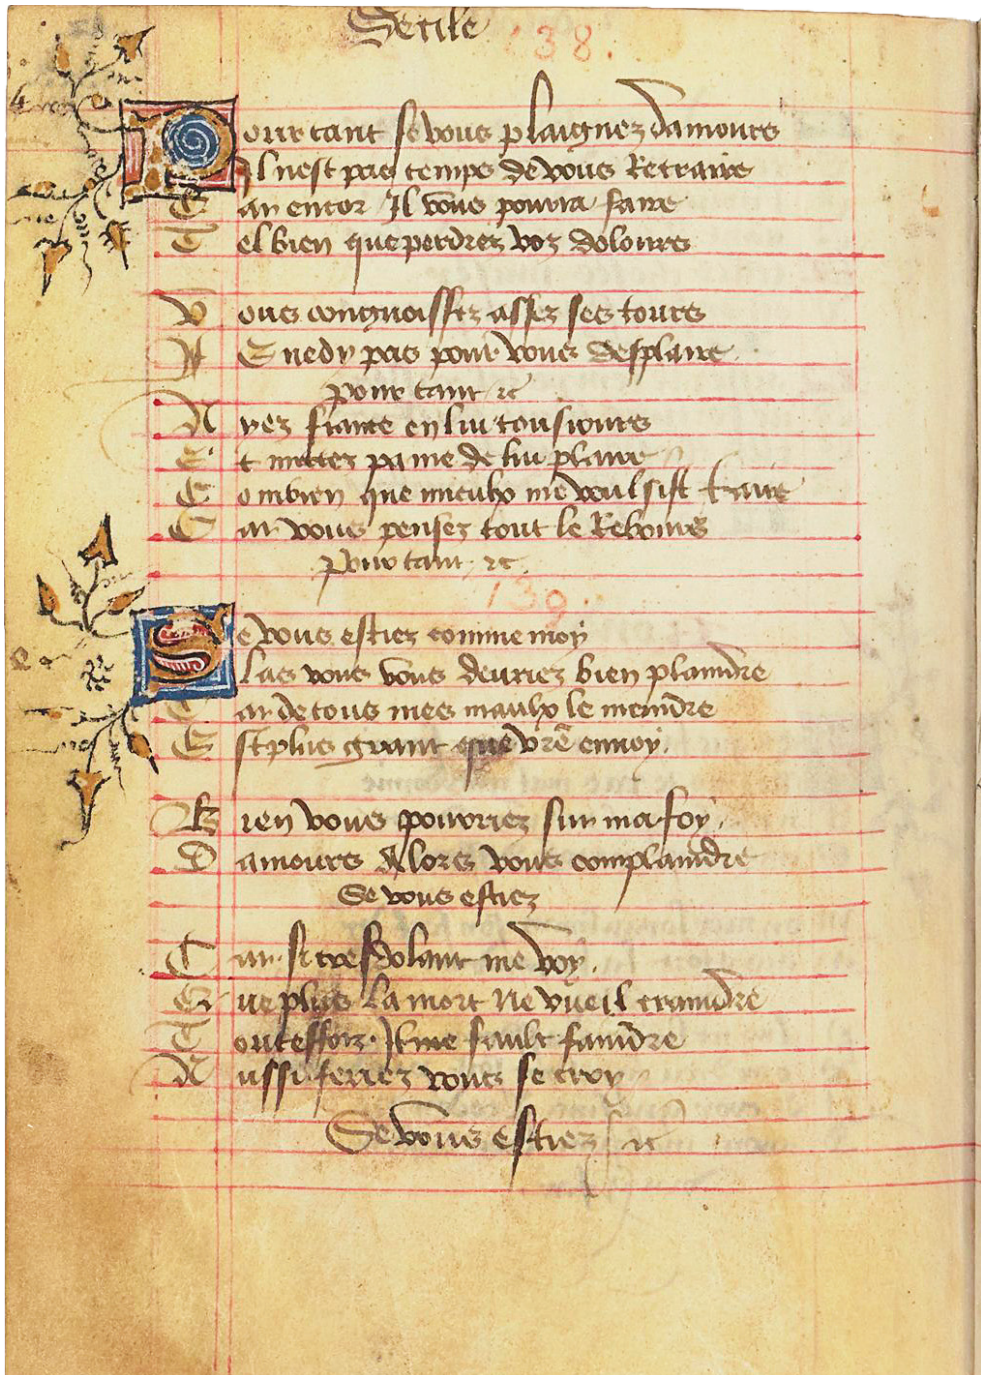 Secile
138.
Pourtant se vous plaignez damours
Il nest pas temps de vous Retraire
Car encor Il vous pourra faire
Tel bien que perdrez voz dolours
Vous congnoissez assez ses tours
Je ne dy pas pour vous desplaire
Pour tant &c
Ayez fiance en lui tousiours
Et mettez paine de lui plaire
Combien que mieulx me voulsist taire
Car vous pensez tout le Rebours
Pour tant &c.
139.
Se vous estiez comme moy
Las vous vous deuriez bien plaindre
Car de tous mes maulx le meindre
Est plus grant que vr̃e ennoy.
Bien vous pourriez sur ma foy.
Damours Alors vous complaindre
Se vous estiez
Car si tresdolant me voy.
Que plus La mort Ne vueil craindre
Touteffoiz. Il me fault faindre
Aussi feriez vous se croy
Se vous estiez &c